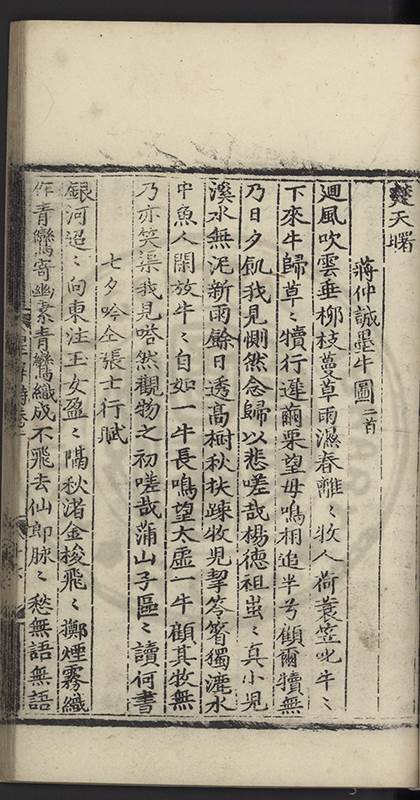 天曙
蔣仲誠墨牛圖二首
迴風吹雲垂柳枝蔓草雨濕春離〻牧人荷蓑笠叱牛〻
下來牛歸草〻犢行遲兩眾望母鳴相追半兮顧爾犢無
乃日夕飢我見惻然念歸以悲嗟哉楊德祖蚩〻真小兒
溪水無泥新雨餘日透髙樹秋扶踈牧児挈笭箵獨漉水
中魚人閑放牛〻自如一牛長鳴望太虛一牛顧其牧無
乃亦笑渠我見嗒然觀物之初嗟哉蒲山子區〻讀何書
七夕吟仝張士行賦
銀河迢〻向東注玉女盈〻隔秋渚金梭飛〻擲煙霧織
作青鸞寄幽素青鸞織成不飛去仙郎脉〻愁無語無語